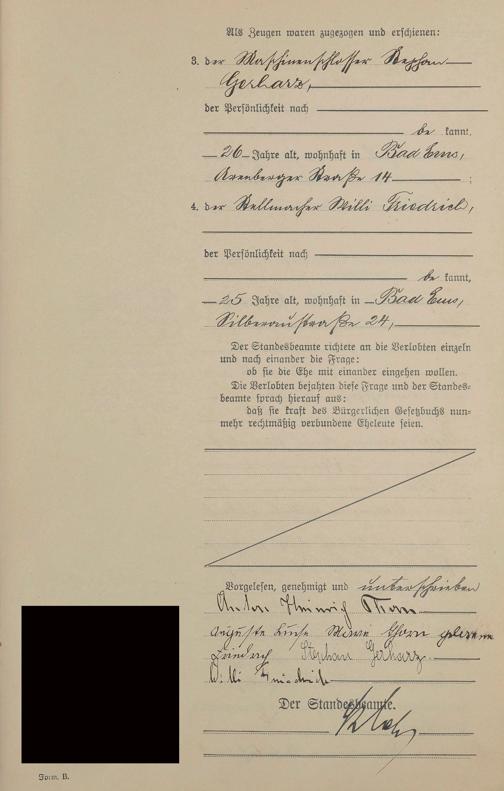 Als Zeugen waren zugezogen und erschienen:
3. der Maschinenschlosser Stephan
Gerharz,
der Persönlichkeit nach
be kannt,
26 Jahre alt, wohnhaft in Bad Ems,
Arenberger Straße 14 ;
4. der Stellmacher Willi Friedrich,
der Persönlichkeit nach
be kannt,
25 Jahre alt, wohnhaft in Bad Ems,
Silberaustraße 24,
Der Standesbeamte richtete an die Verlobten einzeln
und nach einander die Frage:
ob sie die Ehe mit einander eingehen wollen.
Die Verlobten bejahten diese Frage und der Standes-
beamte sprach hierauf aus:
daß sie kraft des Bürgerlichen Gesetzbuchs nun-
mehr rechtmäßig verbundene Eheleute seien.
Vorgelesen, genehmigt und unterschrieben
Anton Heinrich Thorn
Auguste Luise Thorn geborene
Friedrich Stephan Gerharz
Willi Friedrich
Der Standesbeamte.
Form. B.